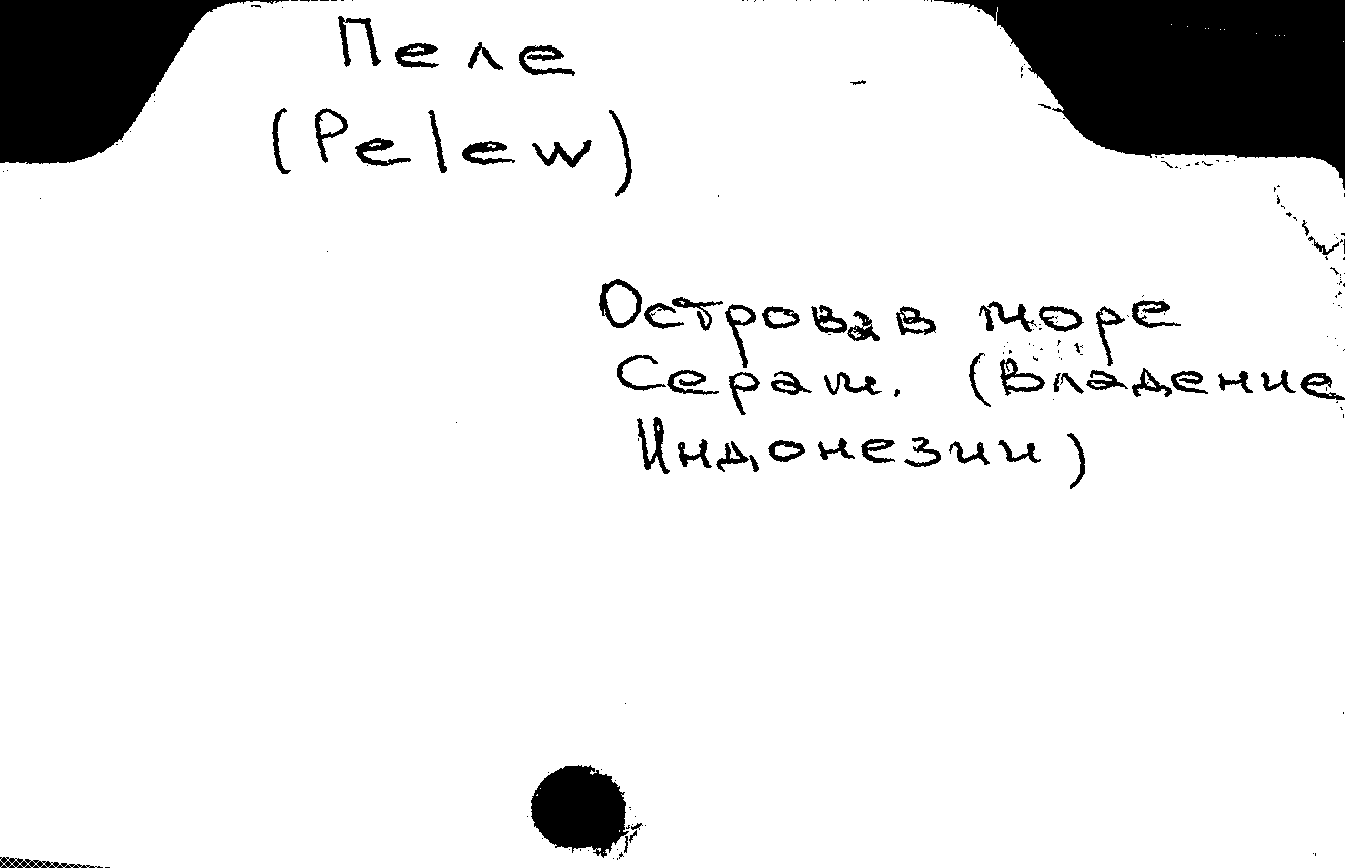 Пеле
(Pelew)
Острова в море
Серам. (Владение
Индонезии)